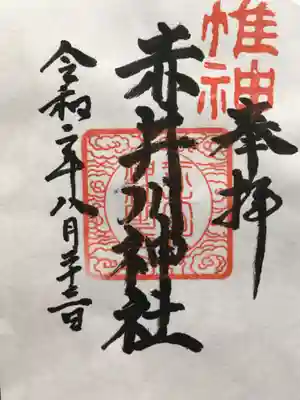 奉拝
惟神
赤井川神社
令和二年八月廿三日